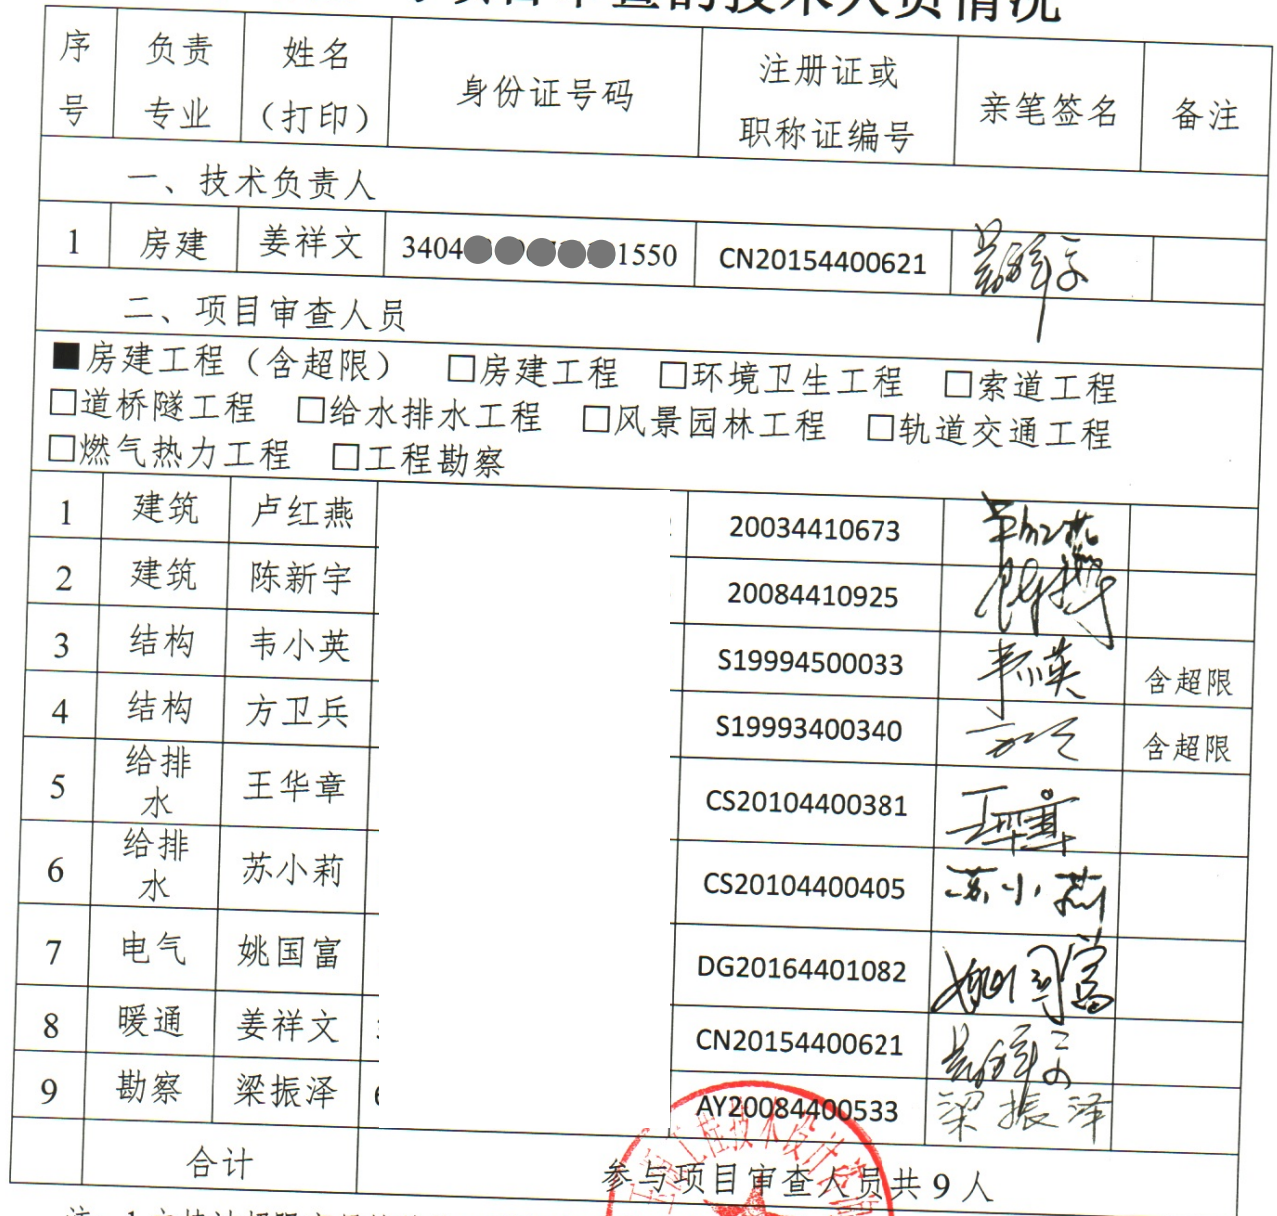 项目审查的技术人员情况
序号 负责专业 姓名（打印） 身份证号码 注册证或职称证编号 亲笔签名 备注
一、技术负责人
1 房建 姜祥文 3404 1550 CN20154400621 姜祥文
二、项目审查人员
■房建工程（含超限） □房建工程 □环境卫生工程 □索道工程
□道桥隧工程 □给水排水工程 □风景园林工程 □轨道交通工程
□燃气热力工程 □工程勘察
1 建筑 卢红燕 20034410673 卢红燕
2 建筑 陈新宇 20084410925
3 结构 韦小英 S19994500033 韦小英 含超限
4 结构 方卫兵 S19993400340 含超限
5 给排水 王华章 CS20104400381 王华章
6 给排水 苏小莉 CS20104400405 苏小莉
7 电气 姚国富 DG20164401082 姚国富
8 暖通 姜祥文 CN20154400621 姜祥文
9 勘察 梁振泽 6 AY20084400533 梁振泽
合计 参与项目审查人员共9人
工程技术设计咨询